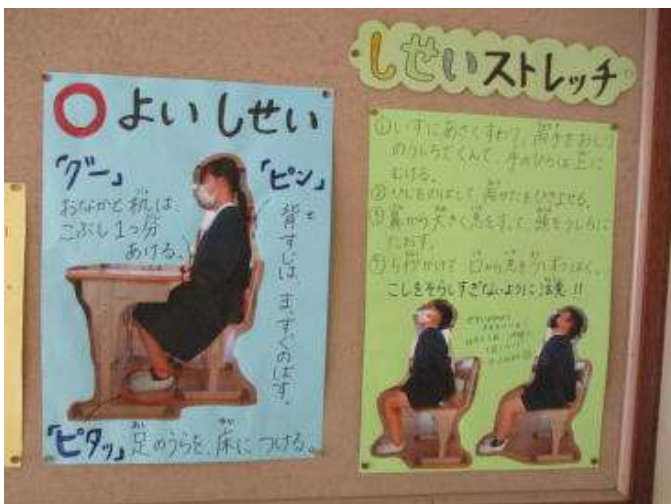 ○よいしせい
「グー」
おなかと机は、
こぶし1つ分
あける。
「ピン」
背すじは、まっすぐのばす。
「ピタッ」足のうらを、床につける。
しせいストレッチ
①いすにあさくすわって、両手をおしり
のうしろでくんで、手のひらは上に
むける。
②ひじをのばして、肩かたをひきよせる。
③鼻から大きく息をすって、頭をうしろに
たおす。
④5秒かけて口から息をはく。
こしをそらしすぎないように注意!!